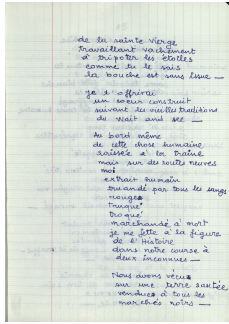 de la sainte Vierge
travaillant vachement
à tripoter les étoiles
comme tu le sais
la bouche est sans issue —
je t'offrirai
un coeur construit
suivant les vieilles traditions
du wait and see —
Au bord même
de cette chose humaine
laissée à la traîne
mais sur de routes neuves
moi
extrait humain
truandé par tous les sangs
rouges
truqué
troqué
marchandé à mort
je me jette à la figure
de l'Histoire
dans notre course à
deux inconnues —
Nous avons vécu
sur une terre sautée
vendue à tous les
marchés noirs —